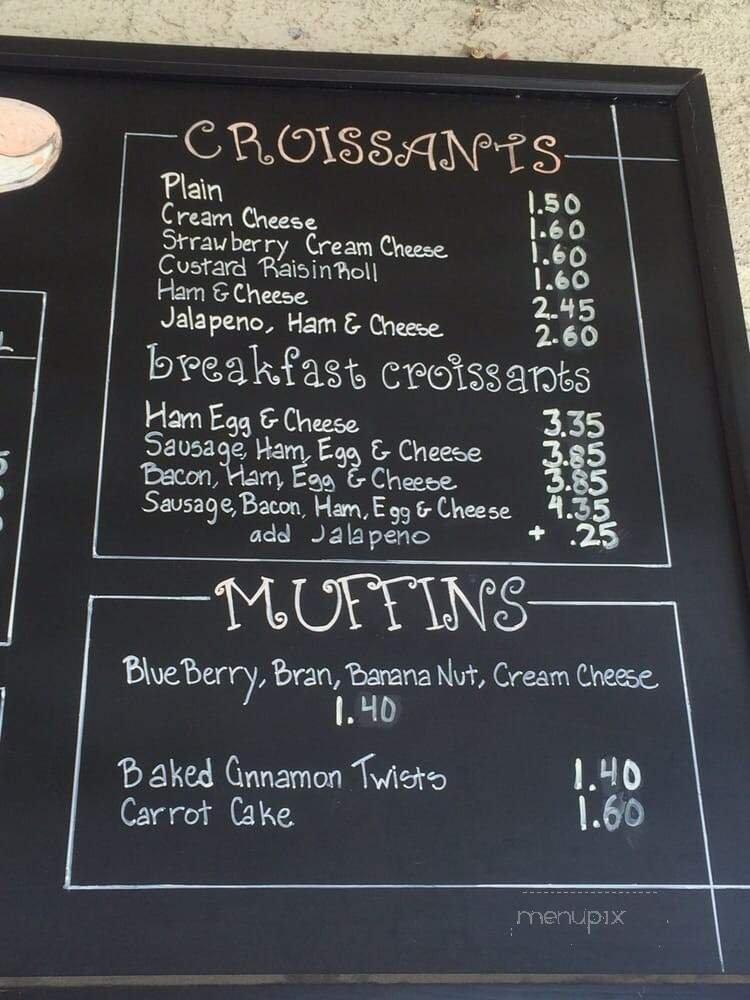 CROISSANTS
Plain 1.50
Cream Cheese 1.60
Strawberry Cream Cheese 1.60
Custard Raisin Roll 1.60
Ham & Cheese 2.45
Jalapeno, Ham & Cheese 2.60
breakfast croissants
Ham Egg & Cheese 3.35
Sausage, Ham, Egg & Cheese 3.85
Bacon, Ham, Egg & Cheese 3.85
Sausage, Bacon, Ham, Egg & Cheese 4.35
add Jalapeno + .25
MUFFINS
Blue Berry, Bran, Banana Nut, Cream Cheese
1.40
Baked Cinnamon Twists 1.40
Carrot Cake 1.60
menupix